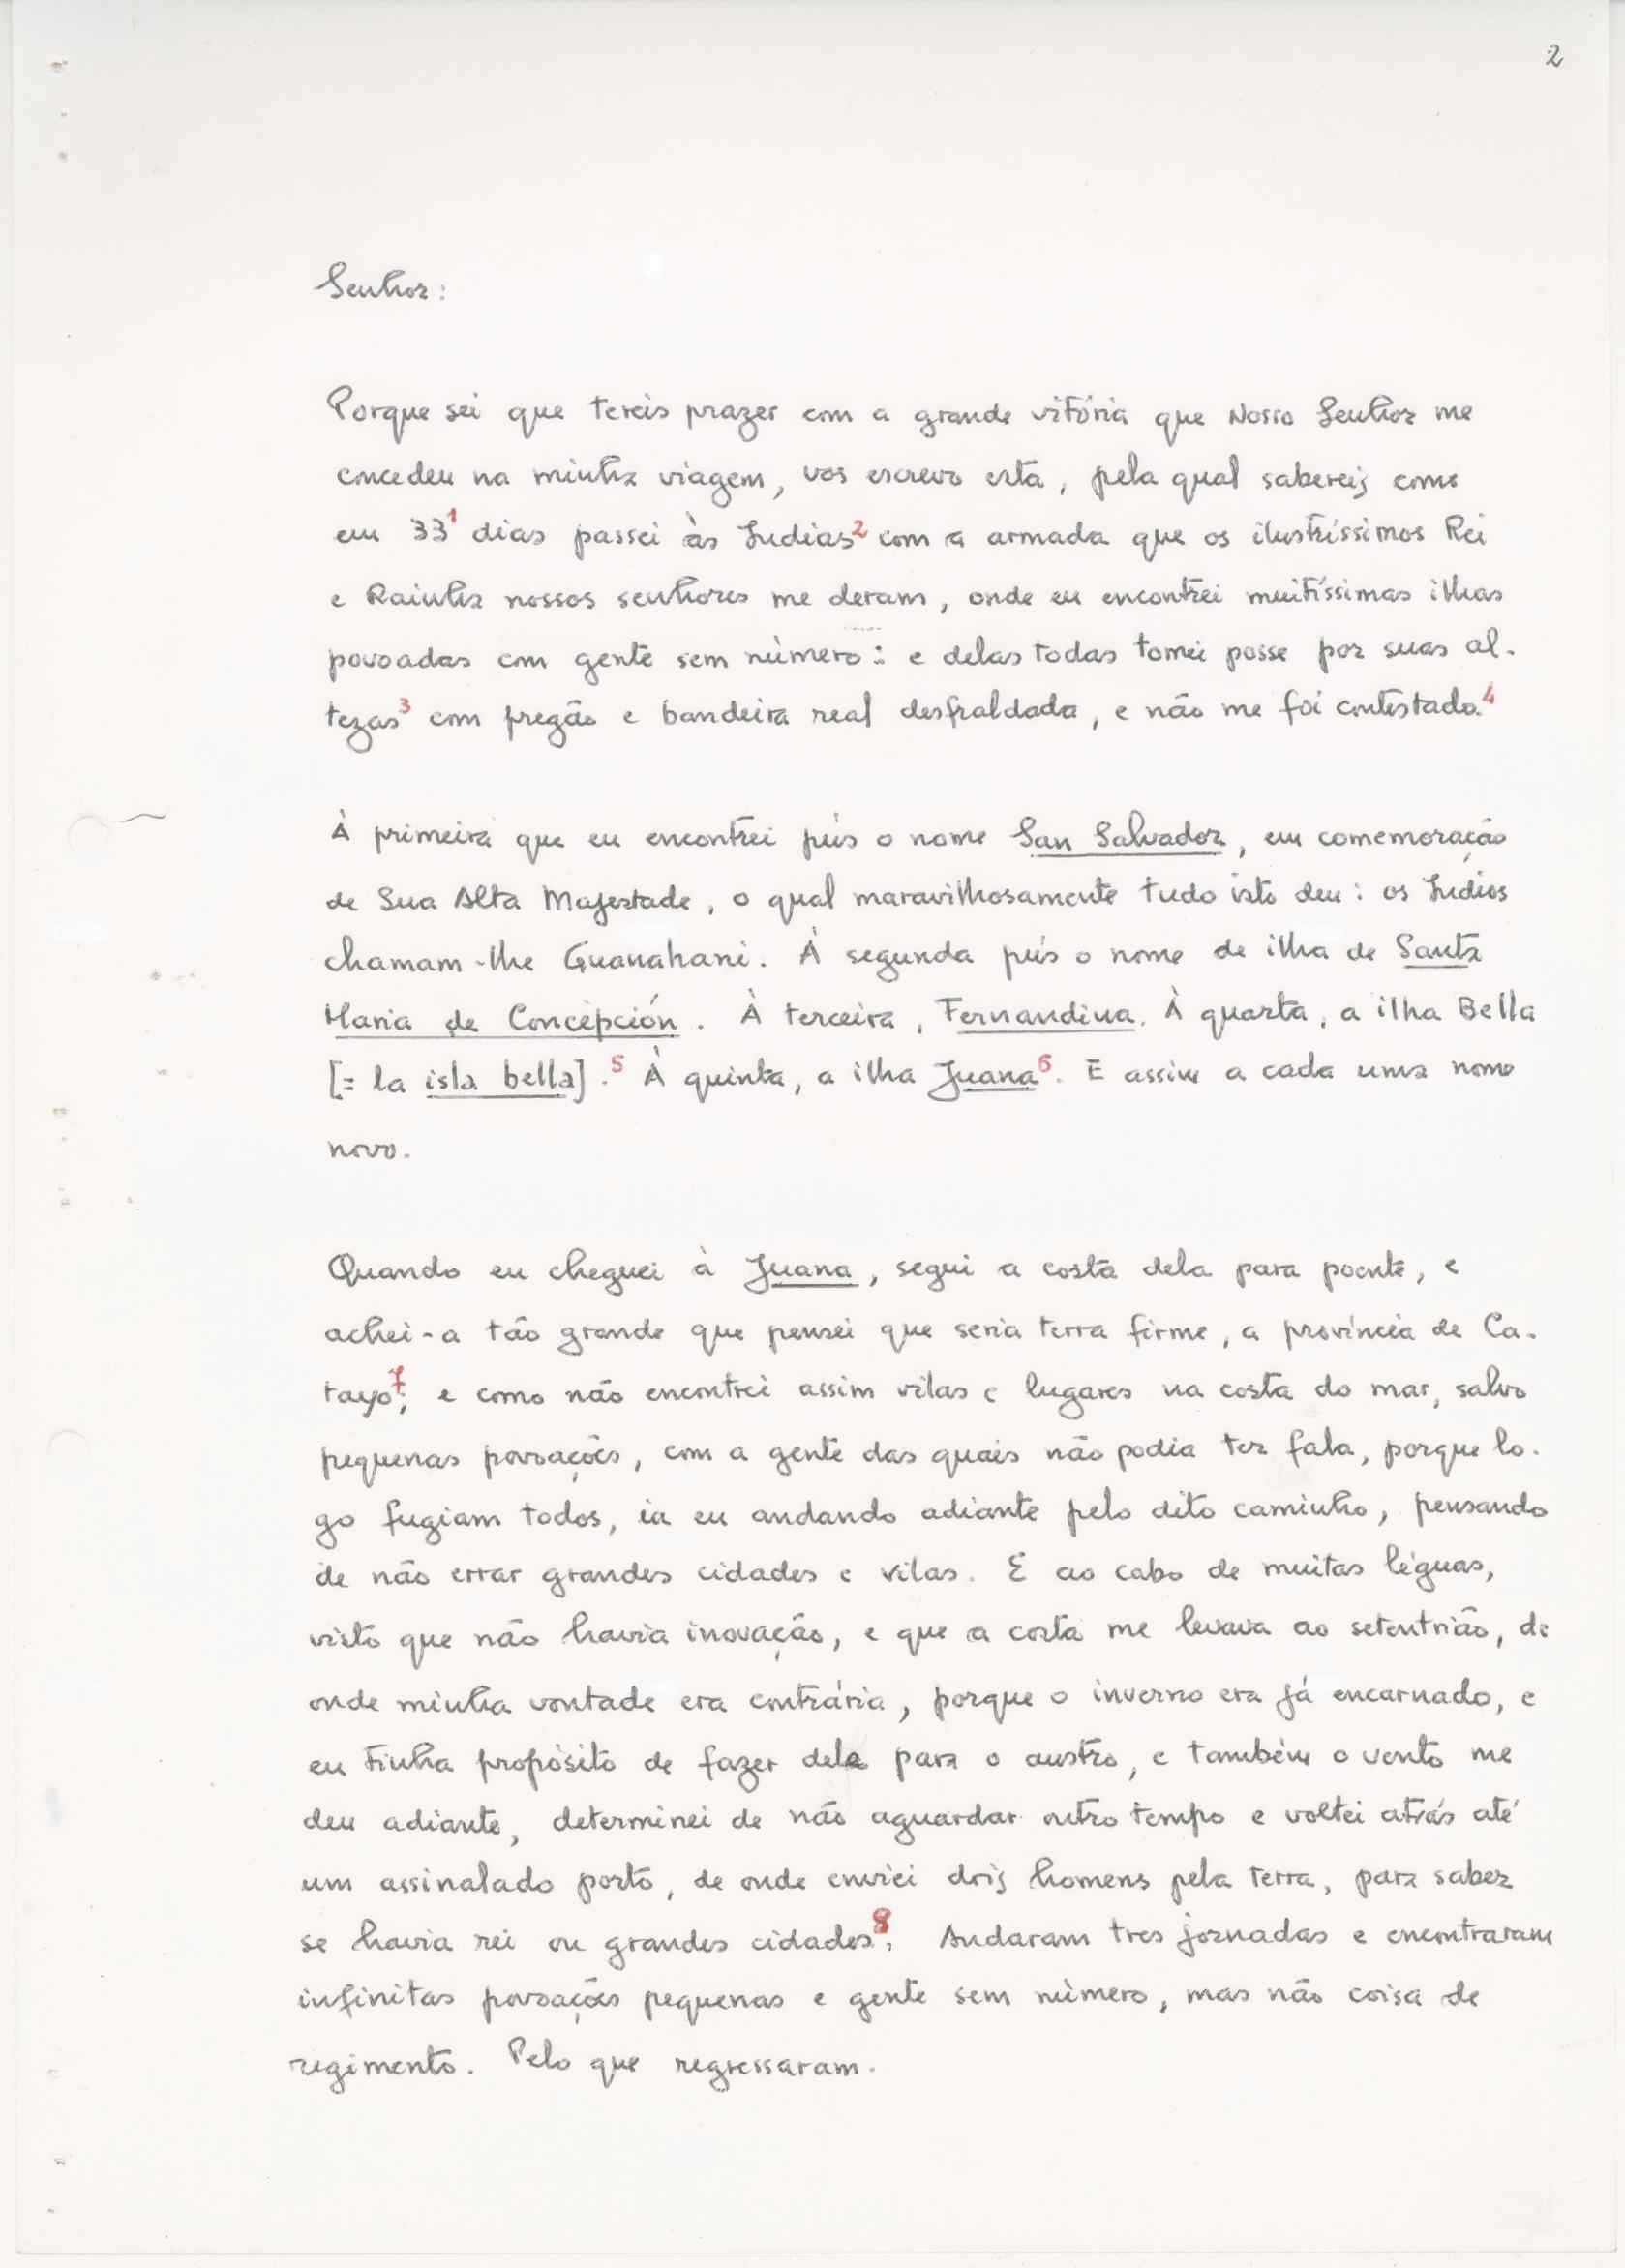 2
Senhor:
Porque sei que tereis prazer com a grande vitória que Nosso Senhor me
concedeu na minha viagem, vos escrevo esta, pela qual sabereis como
em 33¹ dias passei às Indias² com a armada que os ilustríssimos Rei
e Rainha nossos senhores me deram, onde eu encontrei muitíssimas ilhas
povoadas com gente sem número: e delas todas tomei posse por suas al-
tezas³ com pregão e bandeira real desfraldada, e não me foi contestado.⁴
À primeira que eu encontrei pús o nome San Salvador, em comemoração
de Sua Alta Majestade, o qual maravilhosamente tudo isto deu: os Indios
chamam-lhe Guanahani. À segunda pús o nome de ilha de Santa
Maria de Concepción. À terceira, Fernandina. À quarta, a ilha Bella
[= la isla bella].⁵ À quinta, a ilha Juana⁶. E assim a cada uma nome
novo.
Quando eu cheguei à Juana, segui a costa dela para poente, e
achei-a tão grande que pensei que seria terra firme, a província de Ca-
tayo⁷; e como não encontrei assim vilas e lugares na costa do mar, salvo
pequenas povoações, com a gente das quais não podia ter fala, porque lo-
go fugiam todos, ia eu andando adiante pelo dito caminho, pensando
de não errar grandes cidades e vilas. E ao cabo de muitas léguas,
visto que não havia inovação, e que a costa me levava ao setentrião, de
onde minha vontade era contrária, porque o inverno era já encarnado, e
eu tinha propósito de fazer dele para o austro, e também o vento me
deu adiante, determinei de não aguardar outro tempo e voltei atrás até
um assinalado porto, de onde enviei dois homens pela terra, para saber
se havia rei ou grandes cidades⁸. Andaram tres jornadas e encontraram
infinitas povoações pequenas e gente sem número, mas não coisa de
regimento. Pelo que regressaram.